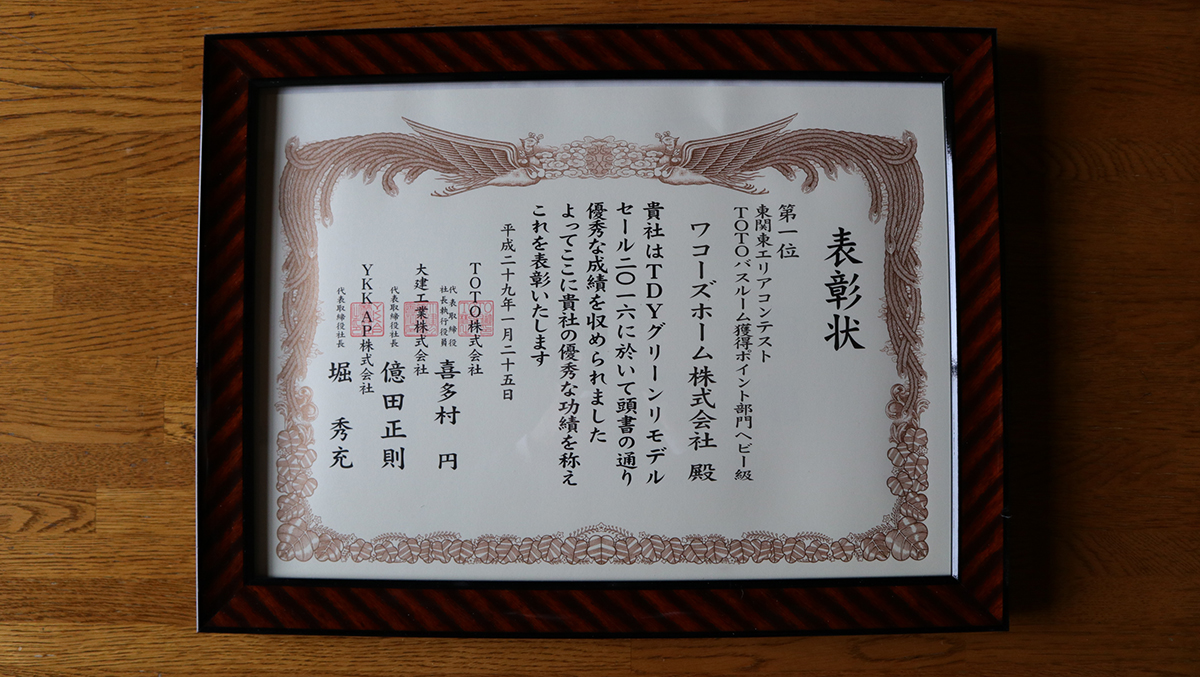 表彰状
第一位
東関東エリアコンテスト
TOTOバスルーム獲得ポイント部門ヘビー級
ワコーズホーム株式会社 殿
貴社はTDYグリーンリモデル
セール二〇一六に於いて頭書の通り
優秀な成績を収められました
よってここに貴社の優秀な功績を称え
これを表彰いたします
平成二十九年一月二十五日
TOTO株式会社
代表取締役
社長執行役員
喜多村 円
大建工業株式会社
代表取締役社長 億田正則
YKK AP株式会社
代表取締役社長 堀 秀充